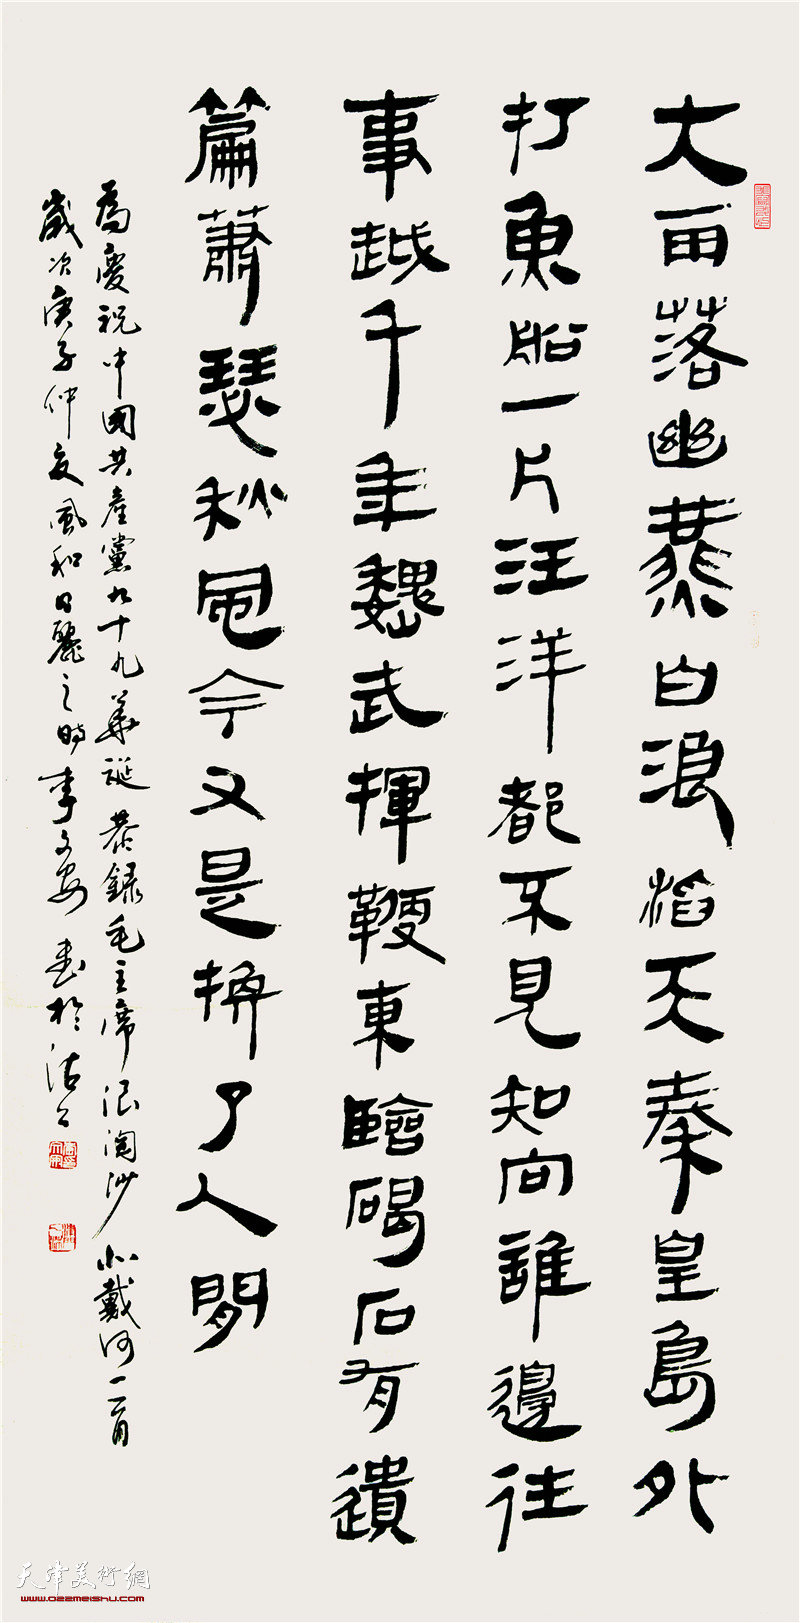 大雨落幽燕白浪滔天秦皇島外
打魚船一片汪洋都不見知向誰邊往
事越千年魏武揮鞭東臨碣石有遺
篇蕭瑟秋風今又是換了人間
為慶祝中國共產黨九十九華誕恭錄毛主席浪淘沙北戴河一首
歲次庚子仲夏風和日麗之時李文安書於沽上
天津美術網
www.022meishu.com